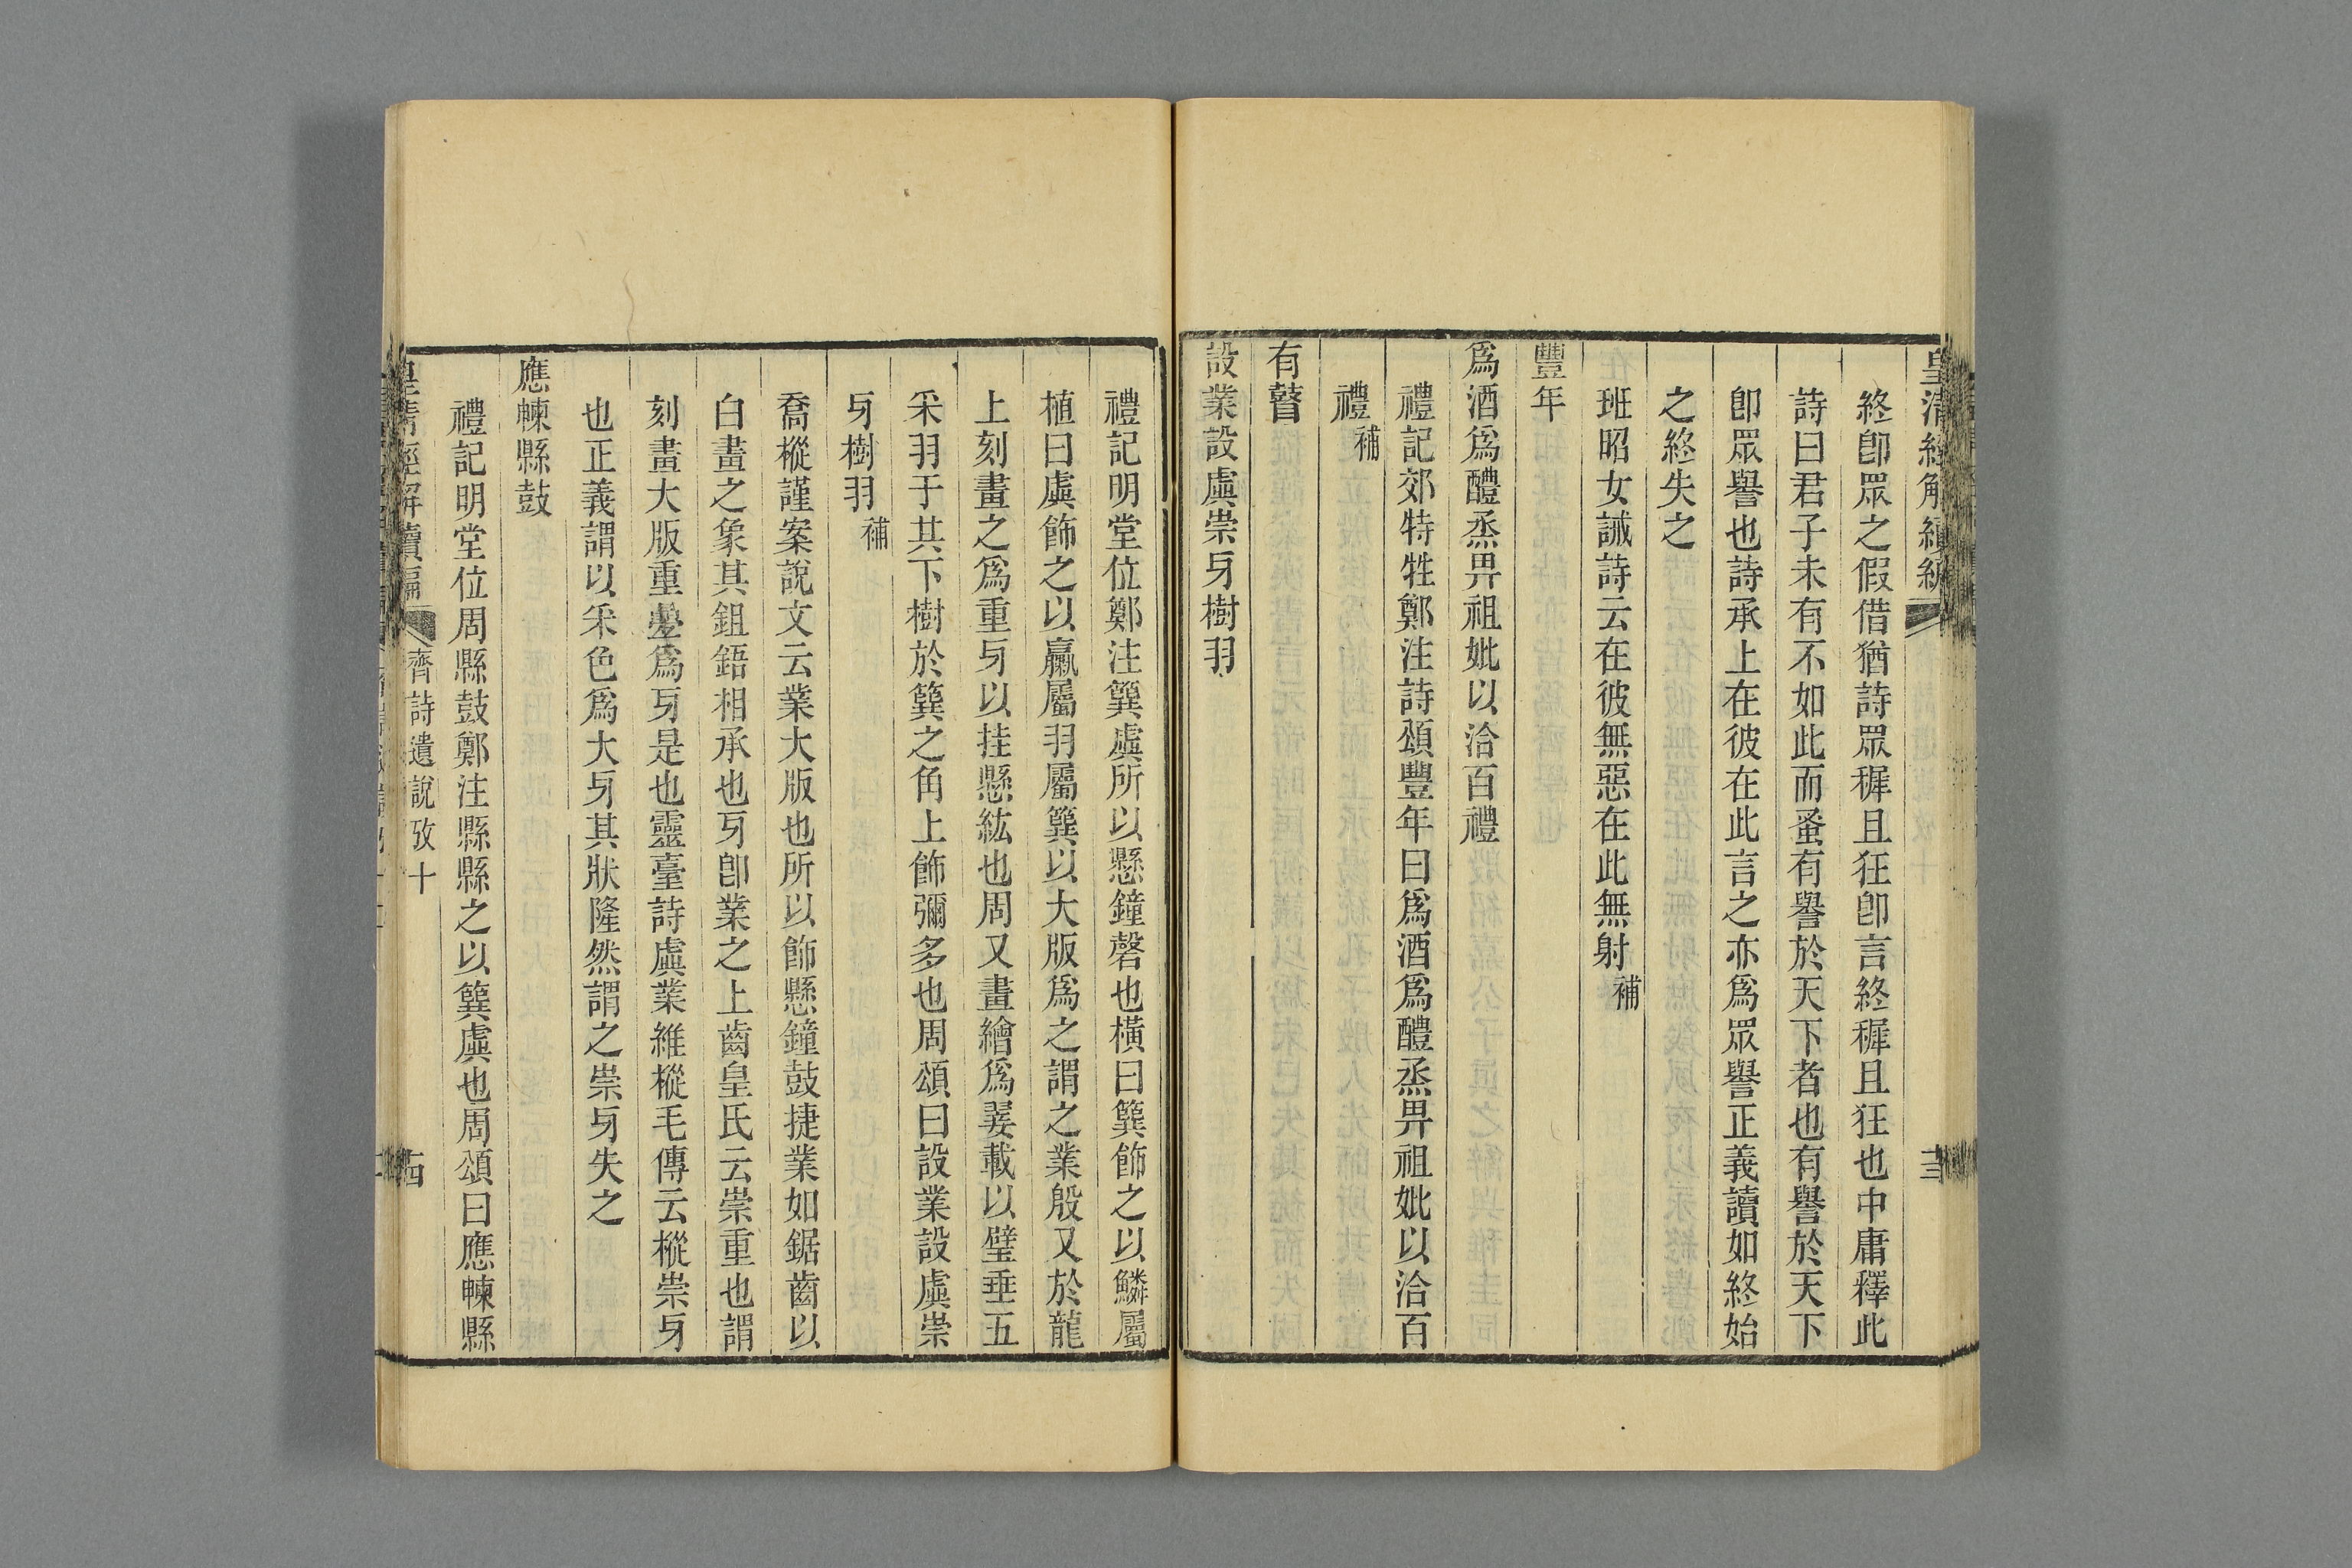 皇清經解續編
終卽眾之假借猶詩眾穉且狂卽言終穉且狂也中庸釋此
詩曰君子未有不如此而蚤有譽於天下者也有譽於天下
卽眾譽也詩承上在彼在此言之亦爲眾譽正義讀如終始
之終失之
班昭女誡詩云在彼無惡在此無射補
豐年
爲酒爲醴烝畀祖妣以洽百禮
禮記郊特牲鄭注詩頌豐年曰爲酒爲醴烝畀祖妣以洽百
禮補
有瞽
設業設虡崇牙樹羽
禮記明堂位鄭注簨虡所以懸鐘磬也橫曰簨飾之以鱗屬
植曰虡飾之以臝屬羽屬簨以大版爲之謂之業殷又於龍
上刻畫之爲重牙以挂懸紘也周又畫繒爲翣載以璧垂五
采羽于其下樹於簨之角上飾彌多也周頌曰設業設虡崇
牙樹羽補
喬樅謹案說文云業大版也所以飾懸鐘鼓捷業如鋸齒以
白畫之象其鉏鋙相承也牙卽業之上齒皇氏云崇重也謂
刻畫大版重疊爲牙是也靈臺詩虡業維樅毛傳云樅崇牙
也正義謂以采色爲大牙其狀隆然謂之崇牙失之
應朄縣鼓
禮記明堂位周縣鼓鄭注縣縣之以簨虡也周頌曰應朄縣
皇清經解續編 齊詩遺說攷十